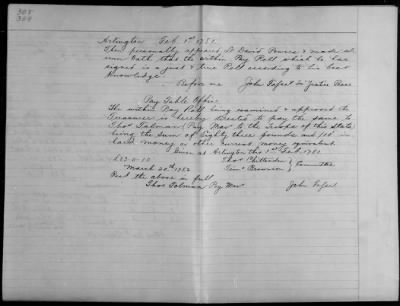 308
308
Arlington Feb. 1st 1781.
Then personally appeared Lt David Powers & made sol-
emn Oath that the within Pay Roll which he has
signed is a just & true Roll according to his best
Knowledge.
Before me John Fassett Jur Justice Peace
Pay Table Office
The within Pay Roll being examined & approved the
Treasurer is hereby directed to pay the same to
Thos Tolman Pay Mar to the troops of this State
being the sum of Eighty three pounds and 10d in
hard money or other current money equivalent.
Given at Arlington this 1st Feb. 1781.
£83-0-10 Thos Chittenden
Timo Brownson } Committee
March 20th 1782 John Fassett
Recd the above in full
Thos Tolman Pay Mar